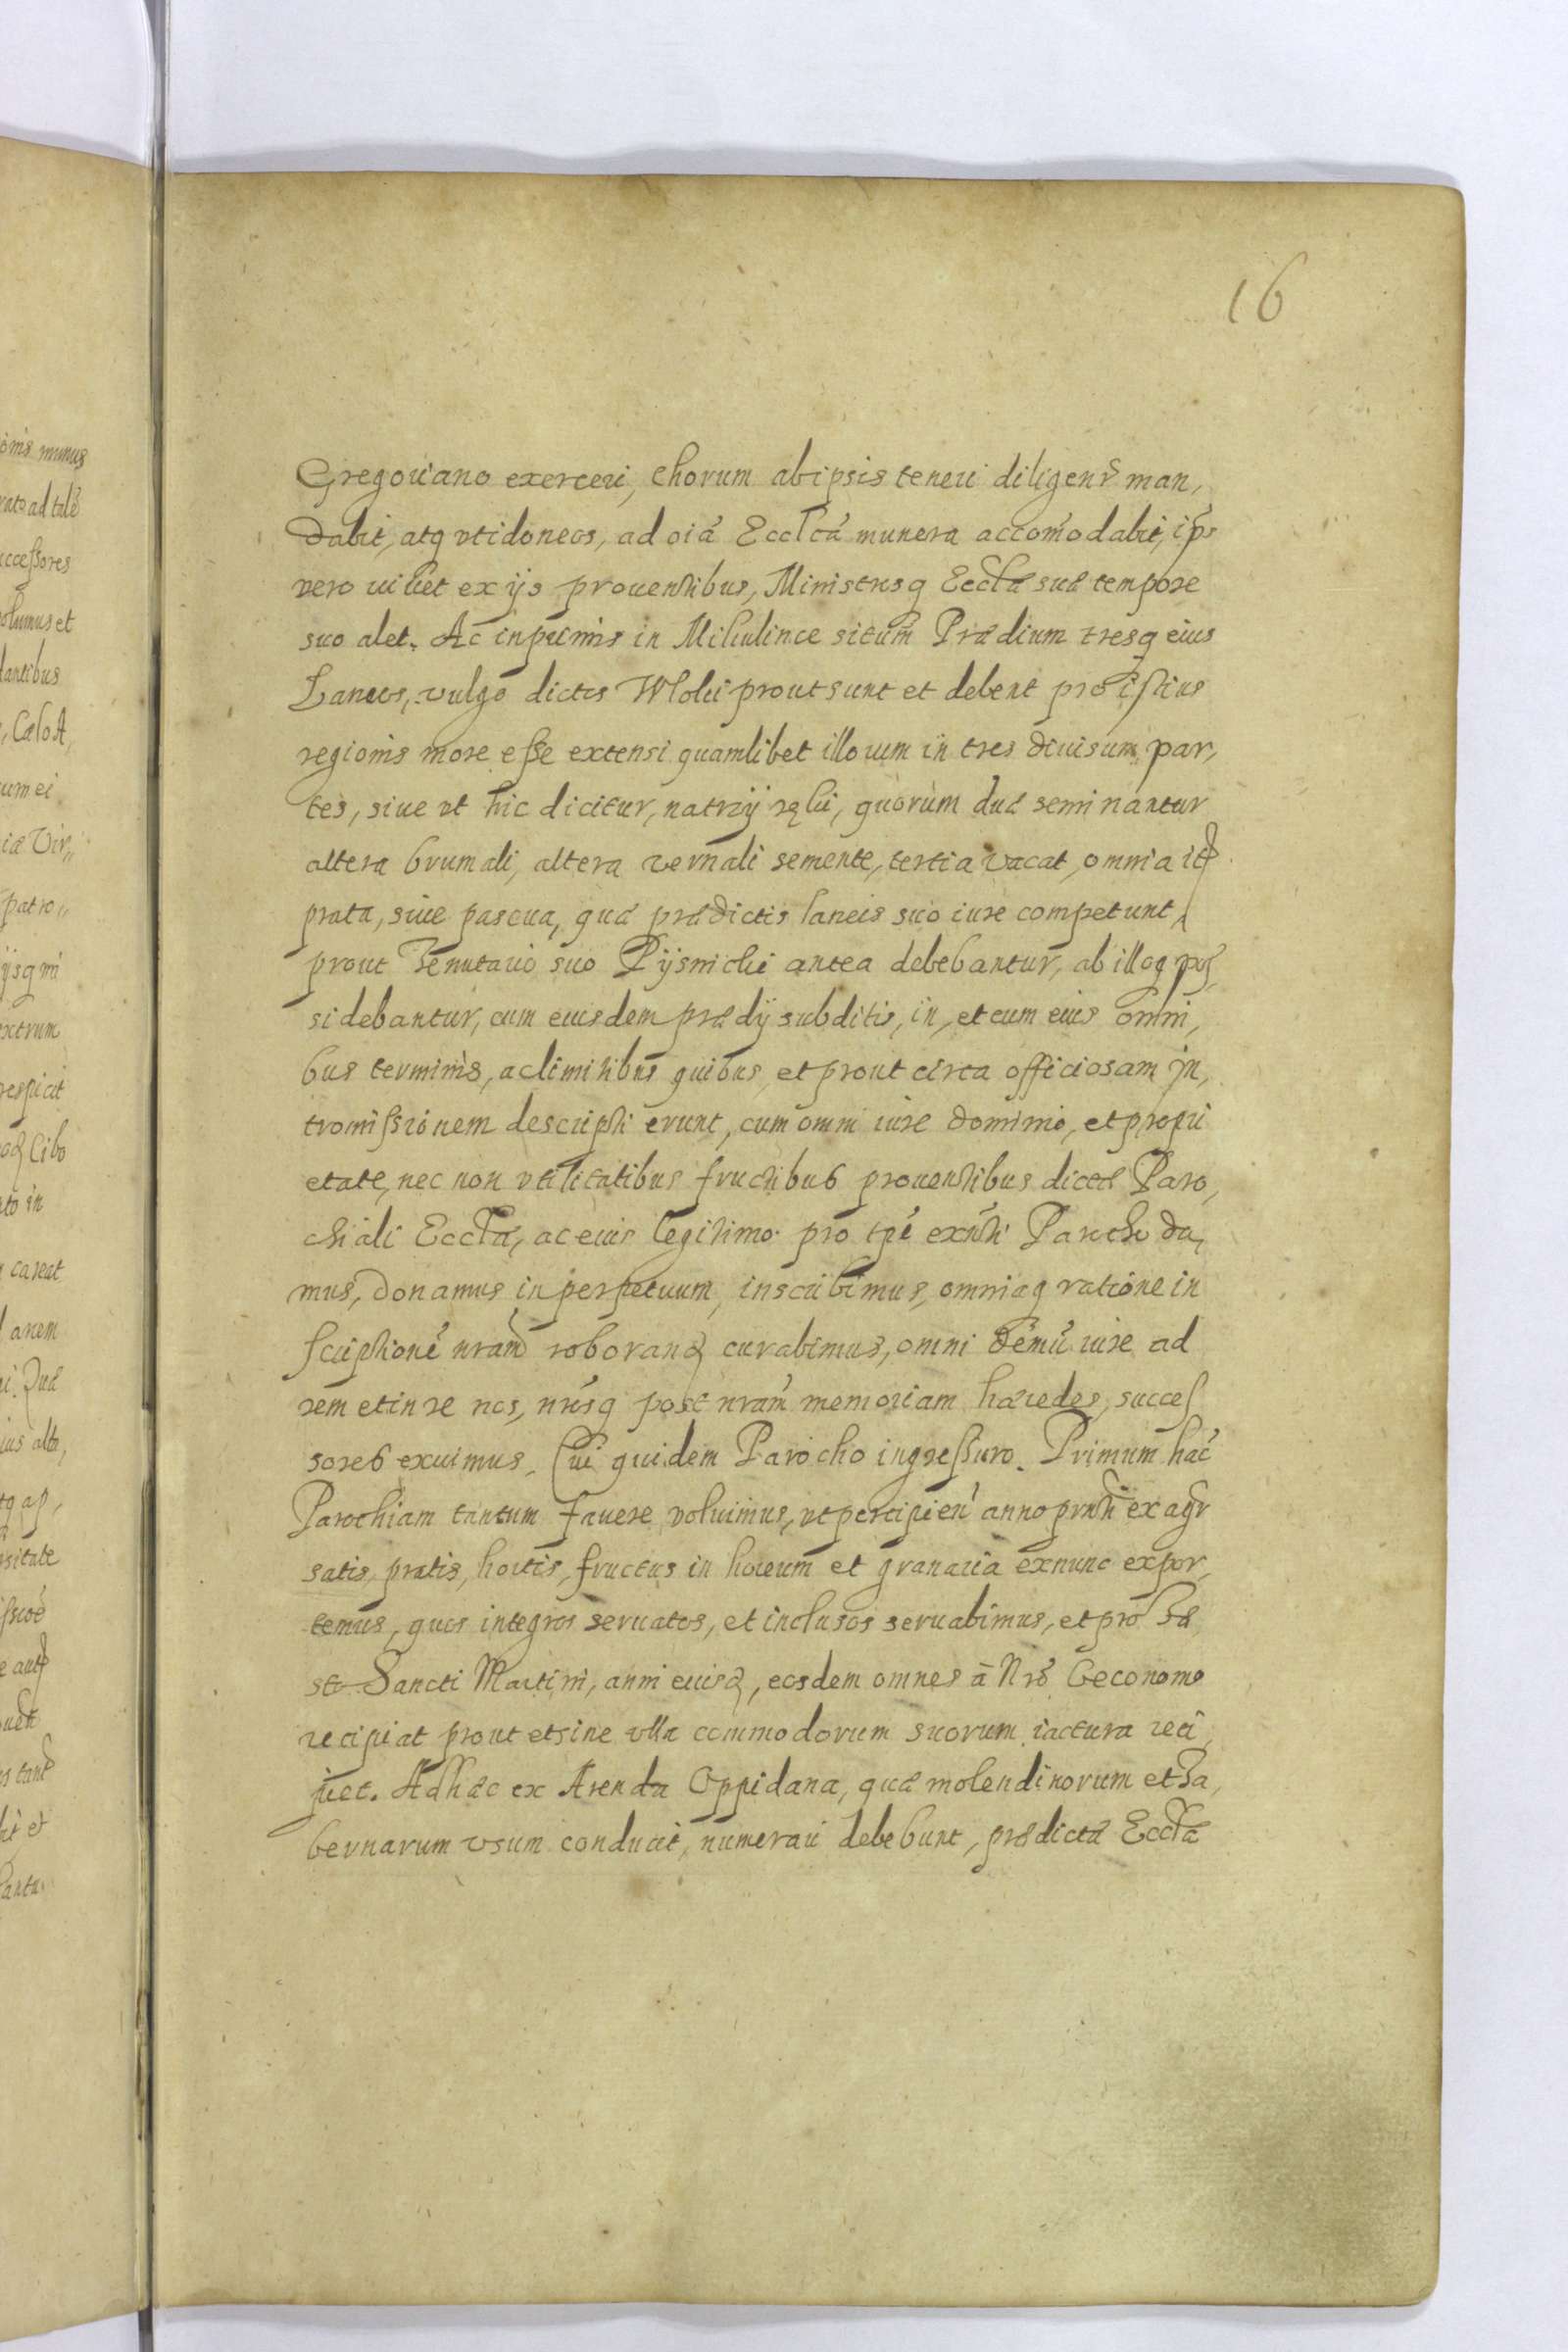 16
Gregoriano exerceri, chorum ab ipsis teneri diligenr̃ man,
dabit, atq vt idoneos, ad oiã Ecclcã munera accom̃odabit, ips̃
vero viuet ex ijs prouentibus, Ministrosq Ecclæ suæ tempore
suo alet. Ac inprimis in Mikulince situm Prædium tresq eius
Laneos, vulgo dictos Wloki prout sunt et debent pro istius
regionis more esse extensi quamlibet illorum in tres diuisum par,
tes, siue vt hic dicitur, natrzÿ ręki, quorum duæ seminantur
altera brumali, altera vernali semente, tertia vacat, omnia itq
prata, siue pascua, quæ prædictis laneis suo iure competunt,
prout Tenutario suo antea debebantur, ab illoq pos
sidebantur, cum eiusdem prædÿ subditis, in, et cum eius omni,
bus terminis, ac limitibus quibus, et prout circa officiosam in,
tromissionem descripti erunt, cum omni iure dominio, et propri
etate, nec non vtilitatibus fructibus prouentibus dictæ Paro,
chiali Ecclæ, ac eius legitimo pro tpẽ exñti Parocho da,
mus, donamus in perpetuum, inscribimus, omniaq ratione in
scriptionẽ nram̃ roborand curabimus, omni demũ iure ad
rem et in re nos, nrõsq post nram̃ memoriam hæredes, succes
sores exuimus. Cui quidem Parocho ingressuro. Primum hãc
Parochiam tantum fauere voluimus, vt percipieñ anno prñti ex agr̃
satis, pratis, hortis, fructus in horeum et granaria exnunc expor,
temus, quos integros seruatos, et inclusos seruabimus, et pro fæ
sto Sancti Martini, anni eiusd, eosdem omnes à Nrõ Oeconomo
recipiat prout et sine vlla commodorum suorum iactura reci
piet. Adhæc ex Arenda Oppidana, quæ molendinorum et ta,
bernarum vsum conducit, numerari debebunt, prædictæ Ecclæ